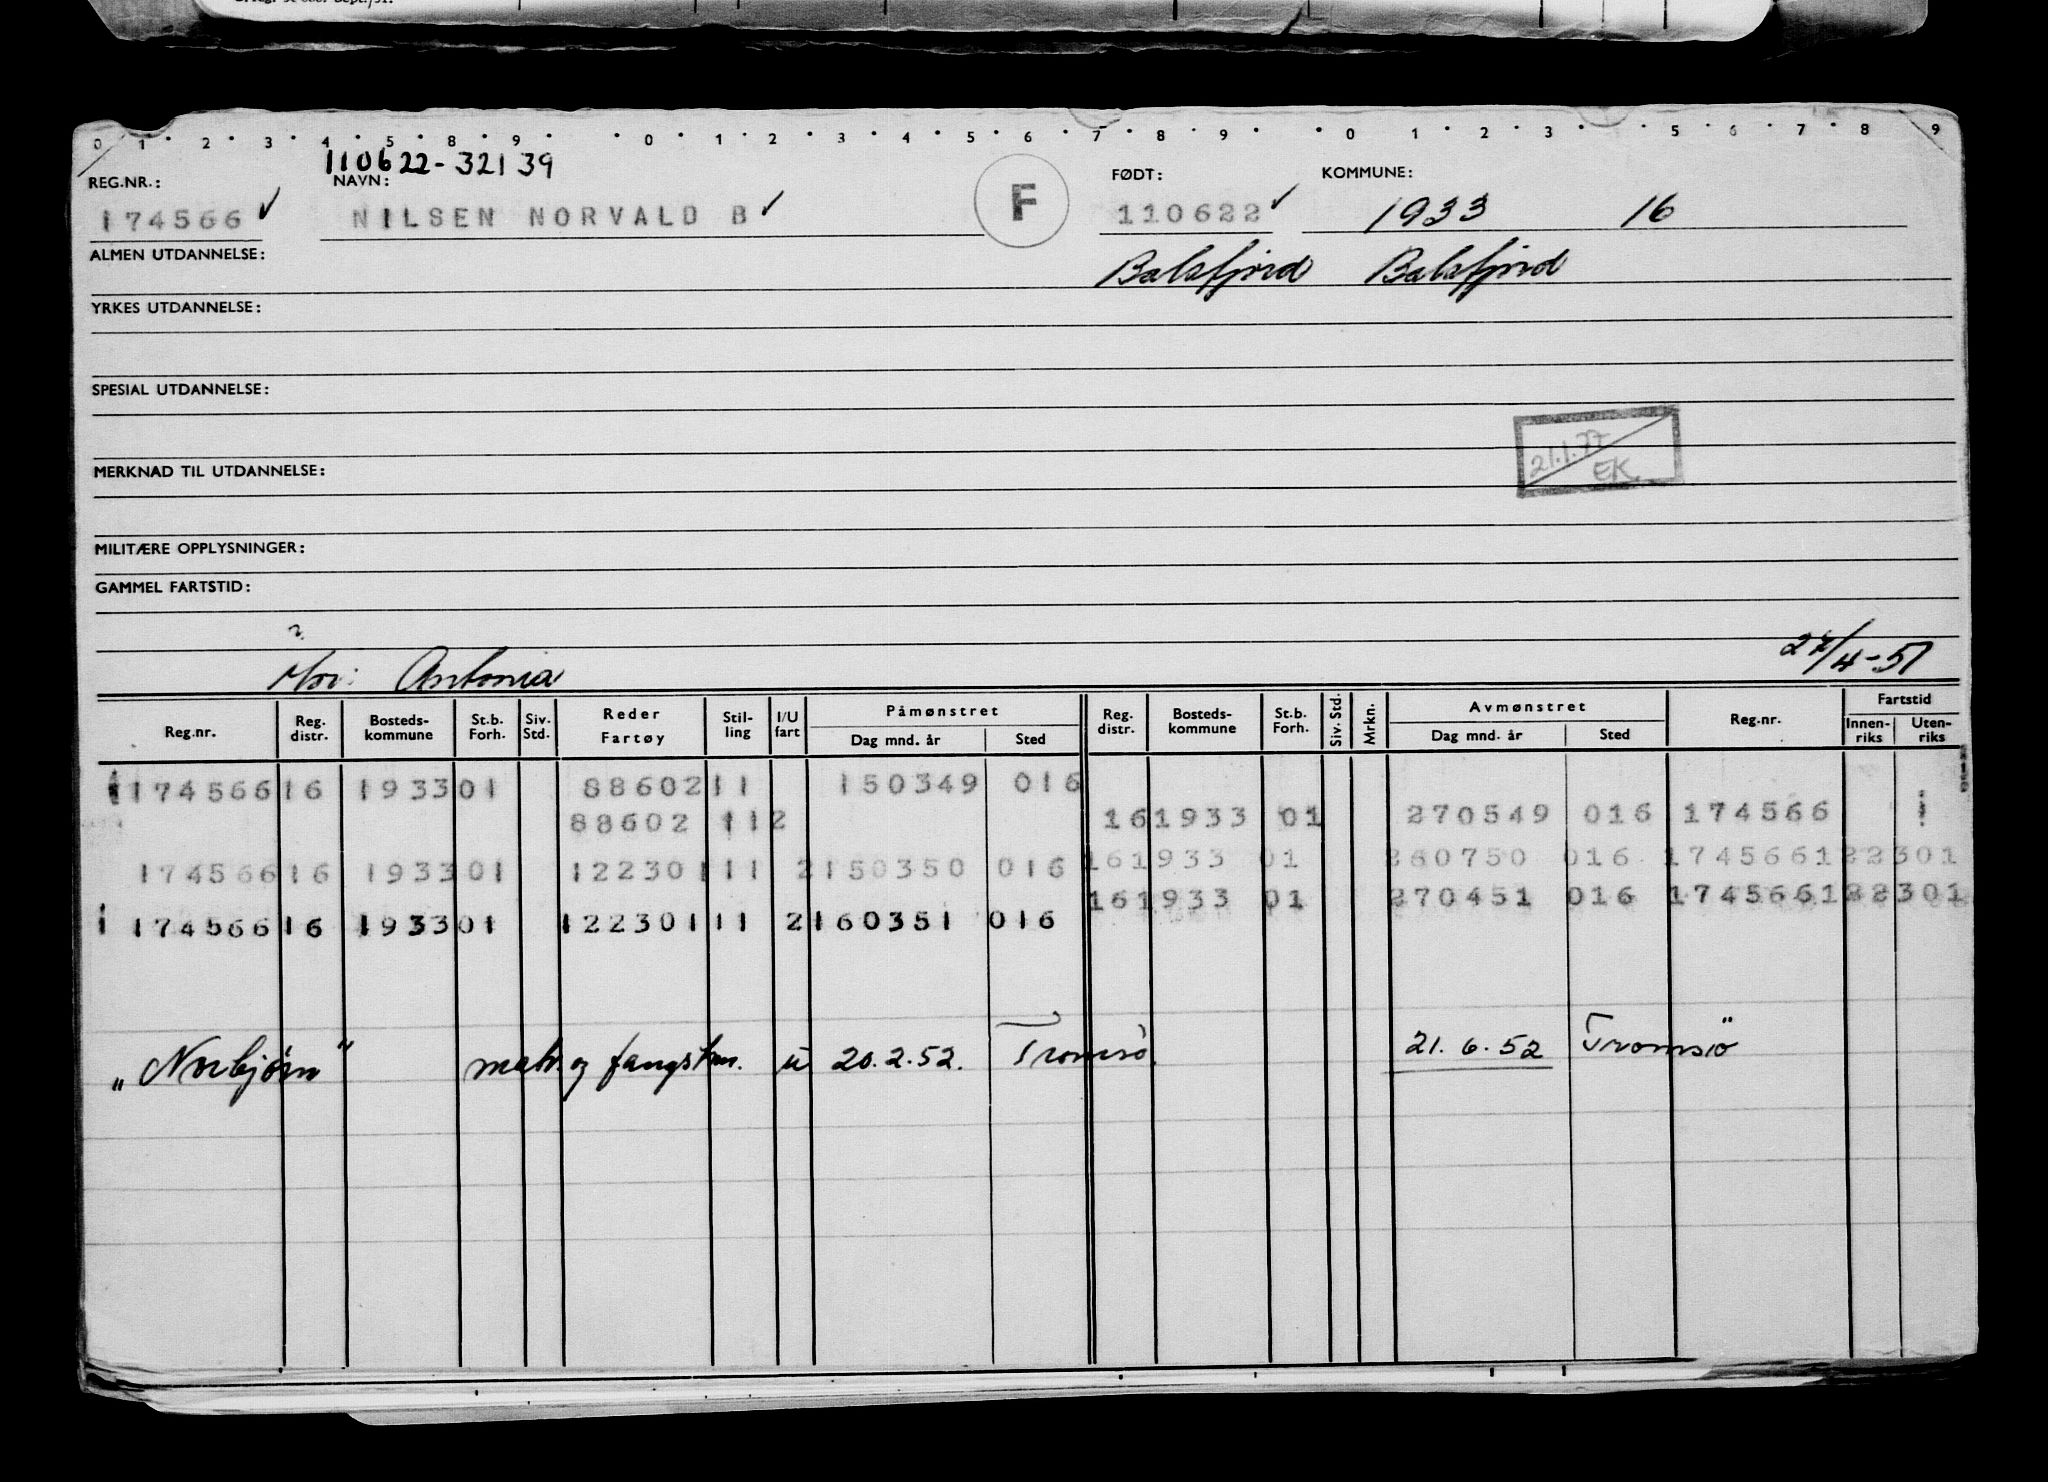 0 1 2 3 4 5 8 9 0 1 2 3 4 5 6 7 8 9 0 1 2 3 5 6 7 8 9
110622-32139
REG.NR.: NAVN: FØDT: KOMMUNE:
174566 ✓ NILSEN NORVALD B ✓ F 110622 ✓ 1933 16
ALMEN UTDANNELSE: Balsfjord Balsfjord
YRKES UTDANNELSE:
SPESIAL UTDANNELSE:
21.1.77
EK.
MERKNAD TIL UTDANNELSE:
MILITÆRE OPPLYSNINGER:
GAMMEL FARTSTID:
Mor: Antonia 27/4-51
Reg.nr. Reg. distr. Bosteds-kommune St.b. Forh. Siv. Std. Reder Fartøy Stil-ling I/U fart Påmønstret Dag mnd. år Sted Reg. distr. Bosteds-kommune St.b. Forh. Siv. Std. Mrkn. Avmønstret Dag mnd. år Sted Reg.nr. Fartstid Innen-riks Uten-riks
174566 16 1933 01 88602 11 150349 016
88602 11 2 16 1933 01 270549 016 174566
174566 16 1933 01 122301 11 2 150350 016 16 1933 01 260750 016 174566 122301
16 1933 01 270451 016 174566 122301
174566 16 1933 01 122301 11 2 160351 016
„Norbjørn" matr. og fangstm. u 20.2.52. Tromsø. 21.6.52 Tromsö